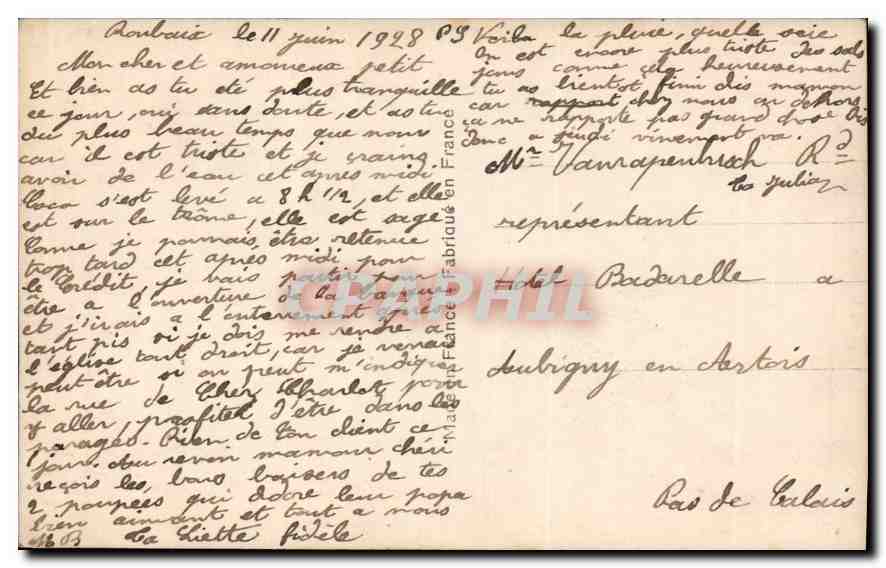 Roubaix le 11 juin 1928
Mon cher et amoureux petit
Et bien as tu été plus tranquille
ce jour, oui sans doute, et as tu
du plus beau temps que nous
car il est triste et je crains
avoir de l'eau cet après midi
Coco s'est levé a 8 h 1/2, et elle
est sur le trône, elle est sage
Comme je pourrais être retenue
trop tard cet après midi pour
le Crédit, je vais partir pour
être a l'ouverture de la banque
et j'irais a l'enterrement après
tant pis si je dois me rendre a
l'église tout droit, car je verrai
peut être si on peut m'indiquer
la rue de Cher Charlot pour
y aller, profiter d'être dans les
parages. Rien de ton client ce
jour. Au revoir mamour chéri
reçois les bons baisers de tes
2 poupées qui adore leur papa
bien aimant et tout a nous
MB Ta Liette fidèle
PS Voila la pluie, quelle scie
On est encore plus triste des sals
jours comme ça heureusement
tu as bientot fini dis mamour
car rapport chez nous au dehors
ça ne rapporte pas grand chose
donc a jeudi vivement va.
Mr Vanrapenbusch Rd
Ta Julia
représentant
Hotel Badarelle a
Aubigny en Artois
Pas de Calais
Made in France Fabriqué en France
CPAPHIL